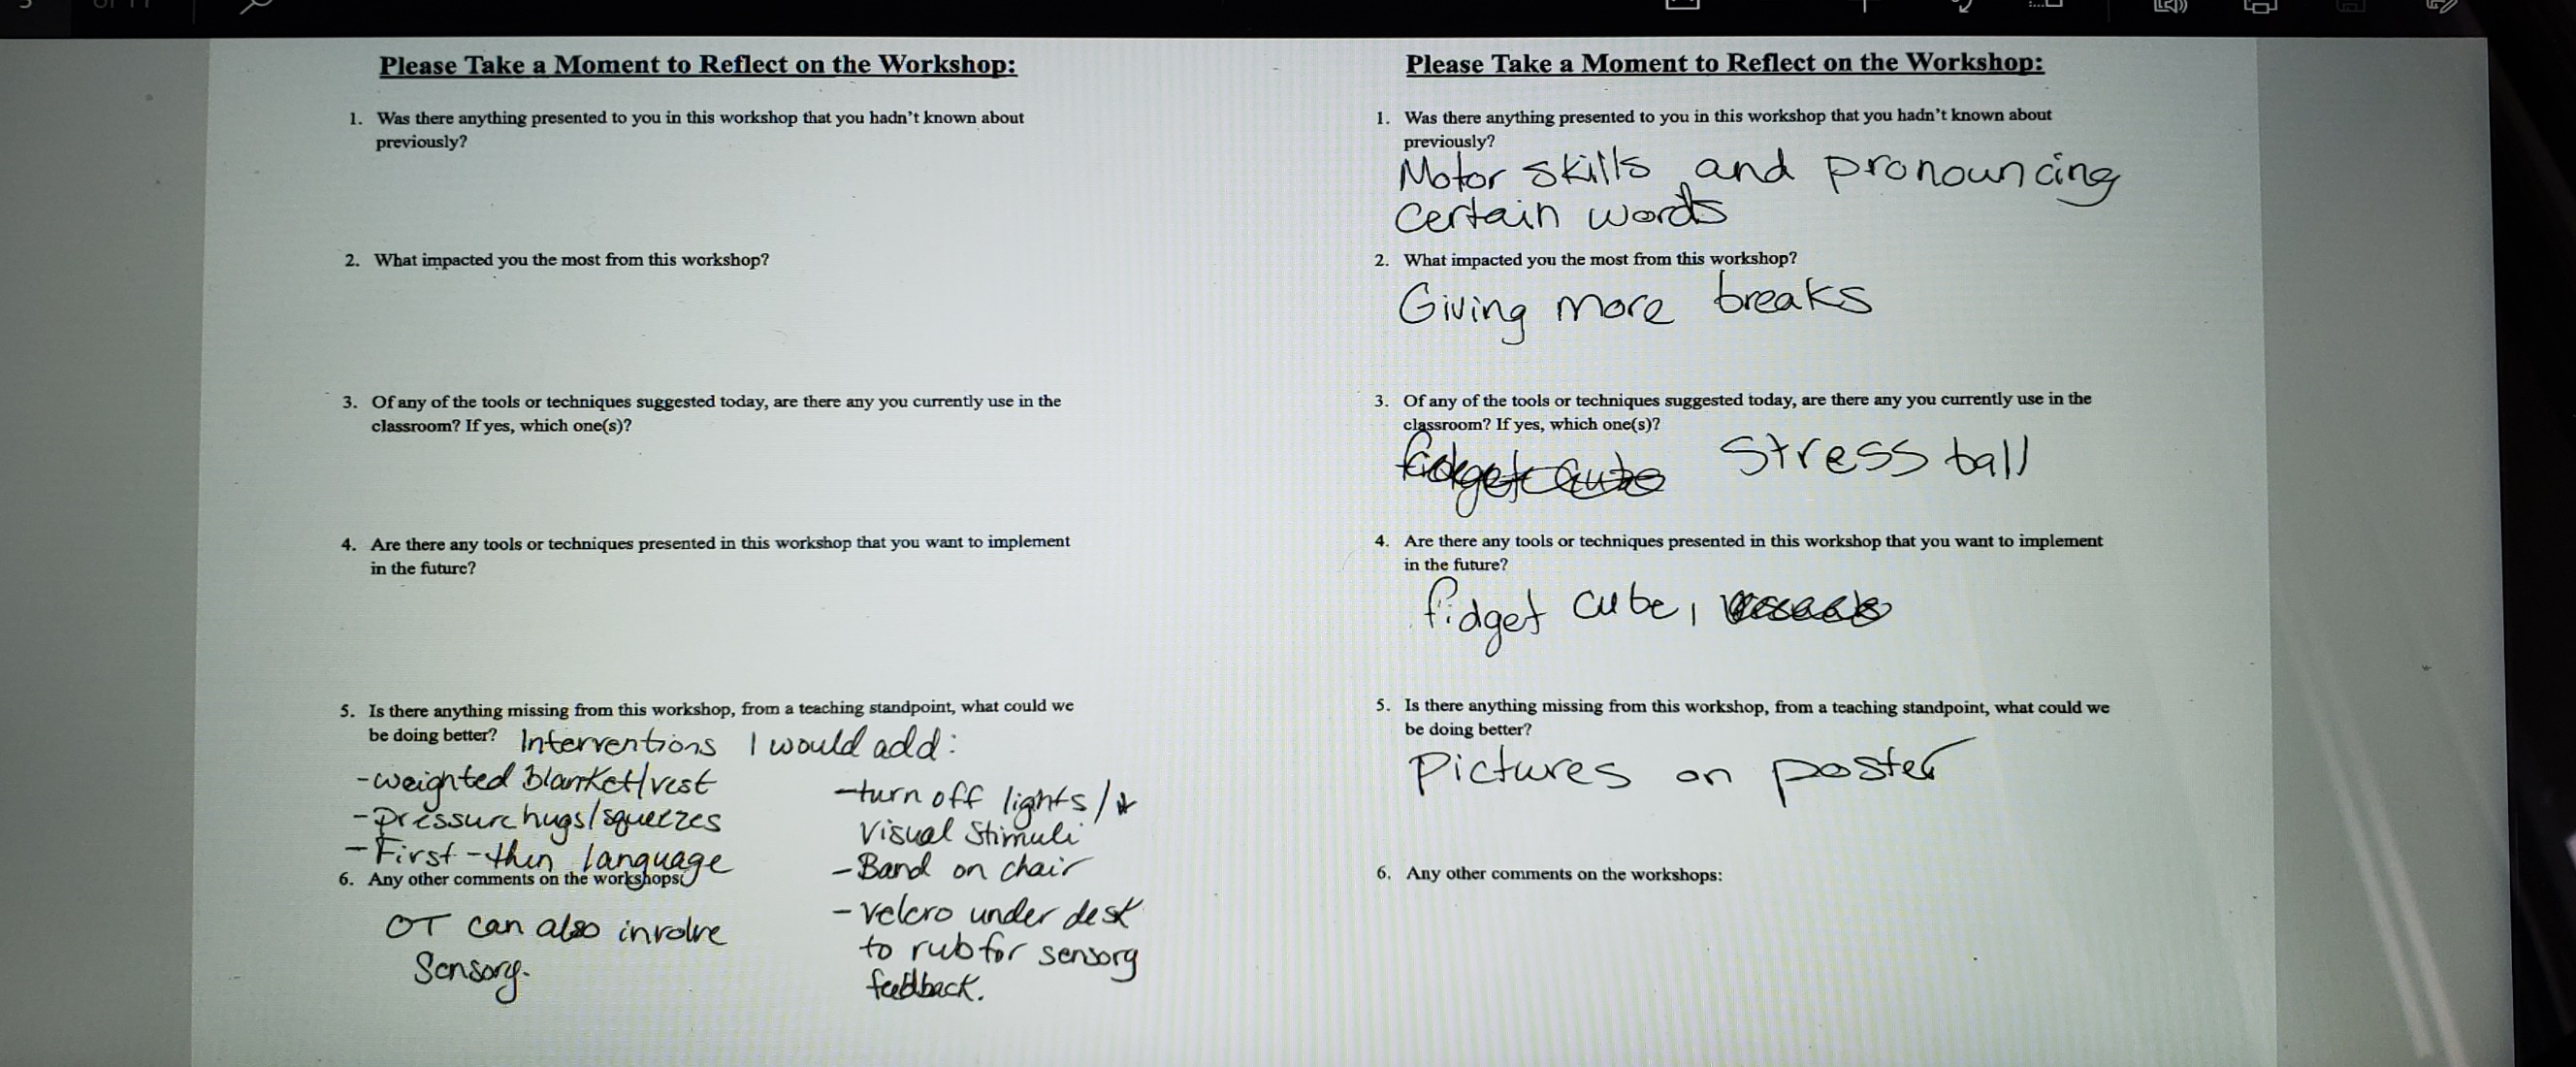 Please Take a Moment to Reflect on the Workshop:
1. Was there anything presented to you in this workshop that you hadn't known about
previously?
2. What impacted you the most from this workshop?
3. Of any of the tools or techniques suggested today, are there any you currently use in the
classroom? If yes, which one(s)?
4. Are there any tools or techniques presented in this workshop that you want to implement
in the future?
5. Is there anything missing from this workshop, from a teaching standpoint, what could we
be doing better? Interventions I would add:
-weighted blanket/vest
-Pressure hugs/squeezes
-First-then language
-turn off lights/
Visual Stimuli
-Band on chair
-velcro under desk
to rub for sensory
feedback.
6. Any other comments on the workshops:
OT can also involve
Sensory.
Please Take a Moment to Reflect on the Workshop:
1. Was there anything presented to you in this workshop that you hadn't known about
previously?
Motor skills and pronouncing
certain words
2. What impacted you the most from this workshop?
Giving more breaks
3. Of any of the tools or techniques suggested today, are there any you currently use in the
classroom? If yes, which one(s)?
fidget cube Stress ball
4. Are there any tools or techniques presented in this workshop that you want to implement
in the future?
fidget cube,
5. Is there anything missing from this workshop, from a teaching standpoint, what could we
be doing better?
Pictures on poster
6. Any other comments on the workshops: